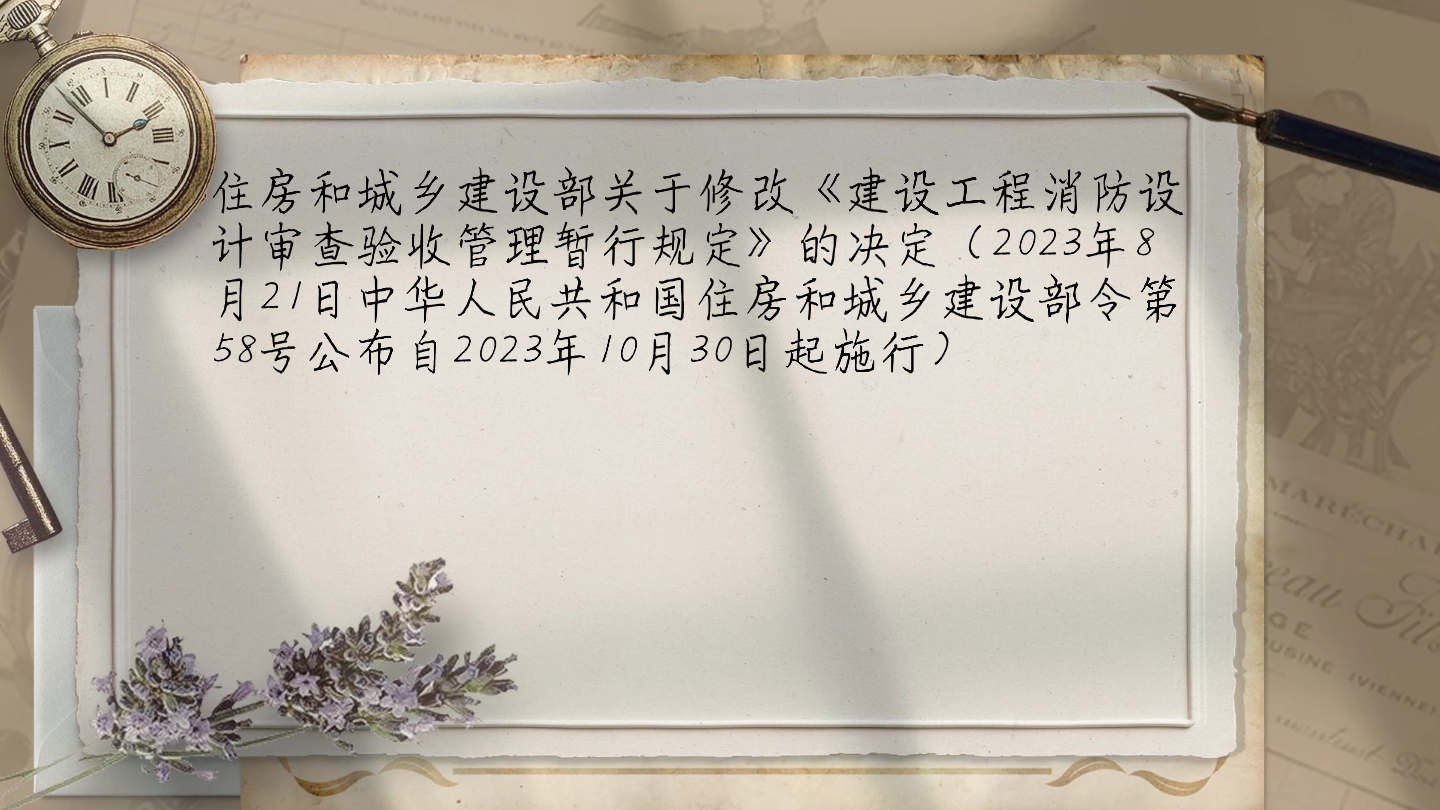 住房和城乡建设部关于修改《建设工程消防设
计审查验收管理暂行规定》的决定（2023年8
月21日中华人民共和国住房和城乡建设部令第
58号公布自2023年10月30日起施行）
MARÉCHAL
GE
(VIENNE)